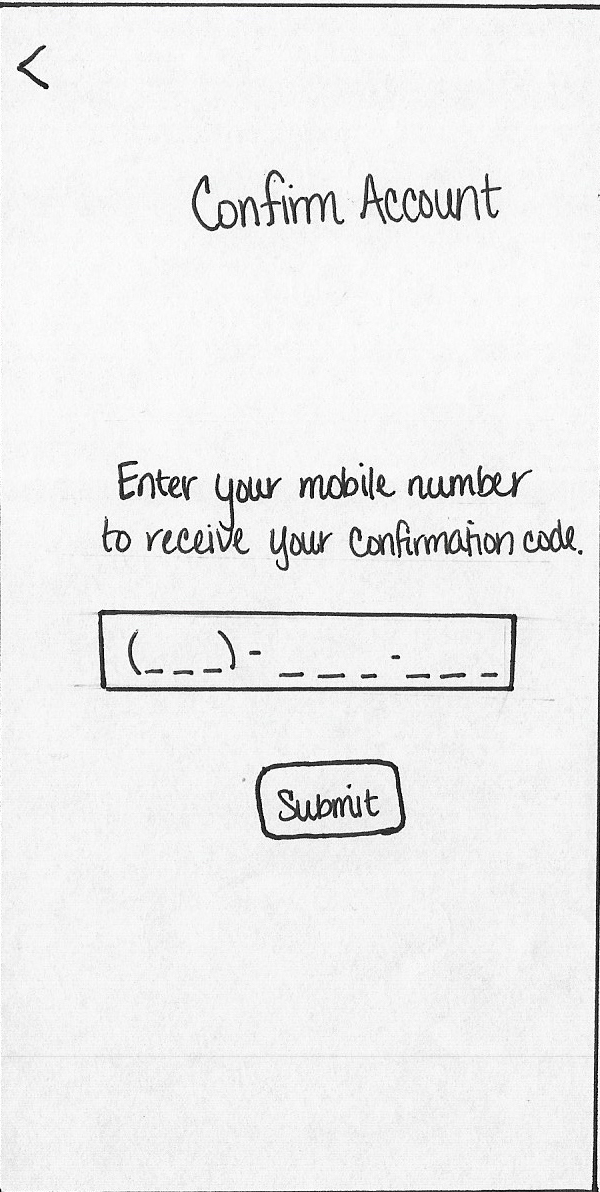 <
Confirm Account
Enter your mobile number
to receive your confirmation code.
(_ _ _) - _ _ _ - _ _ _
Submit